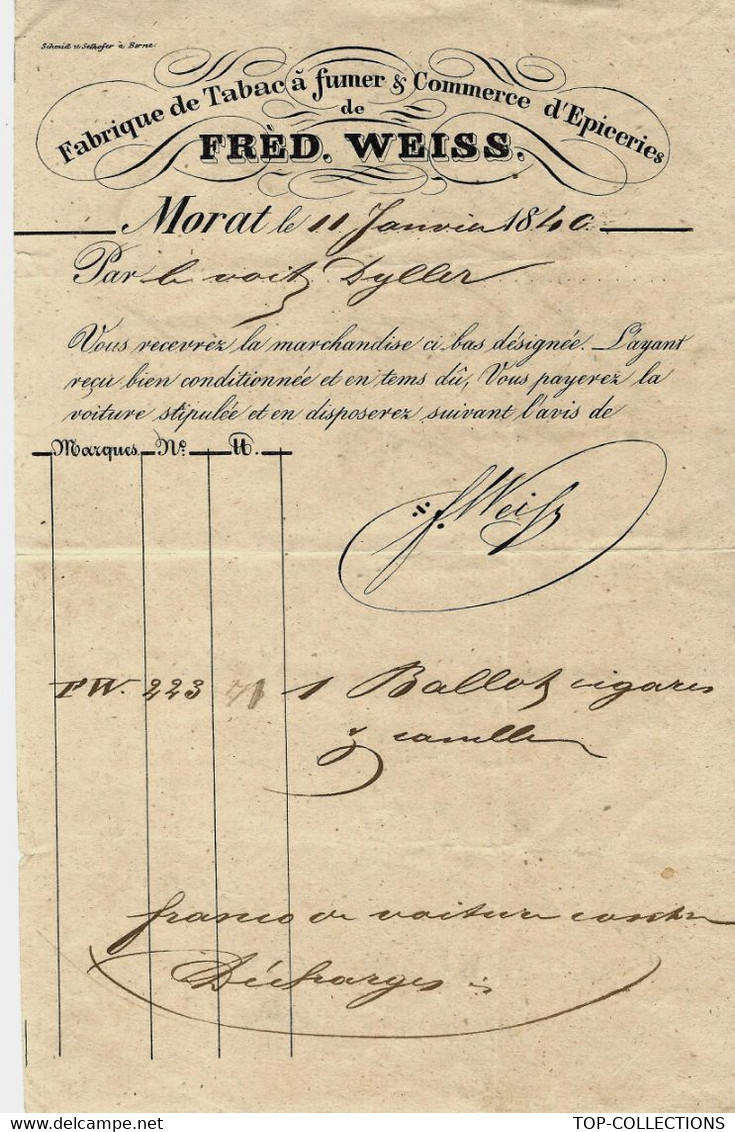 Schmid et Selhofer à Berne.
Fabrique de Tabac à fumer & Commerce d'Epiceries
de
FRÈD. WEISS.
Morat le 11 Janvier 1840
Par le voit Dyller
Vous recevrez la marchandise ci bas désignée. L'ayant
reçu bien conditionnée et en tems dû, Vous payerez la
voiture stipulée et en disposerez suivant l'avis de
Marques. No. ℔.
f. Weiss
FW. 223 71 1 Ballot cigares
franco de voiture contre
Décharges
TOP-COLLECTIONS